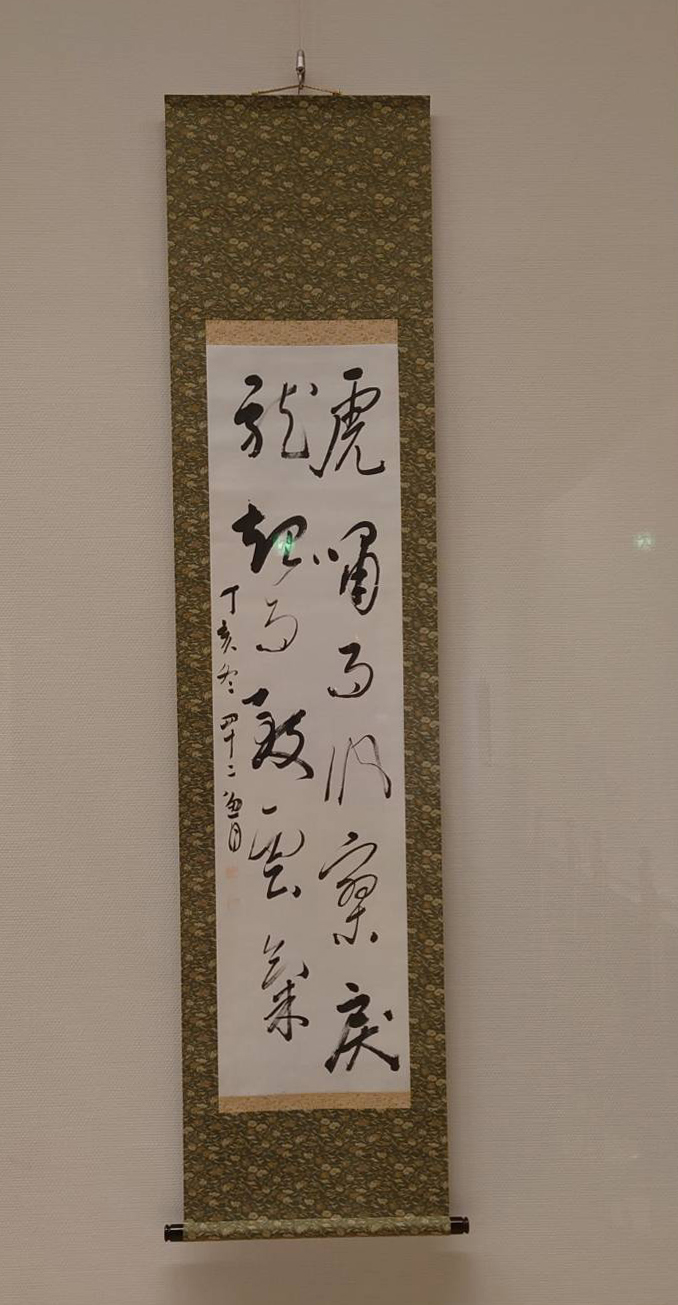 虎嘯而風寥戾
龍起而致雲氣
丁亥冬 四十二